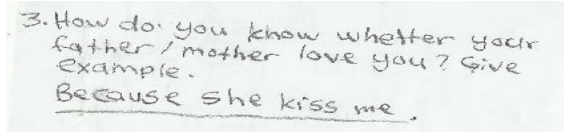 3. How do you know whether your
father / mother love you? Give
example.
Because she kiss me.